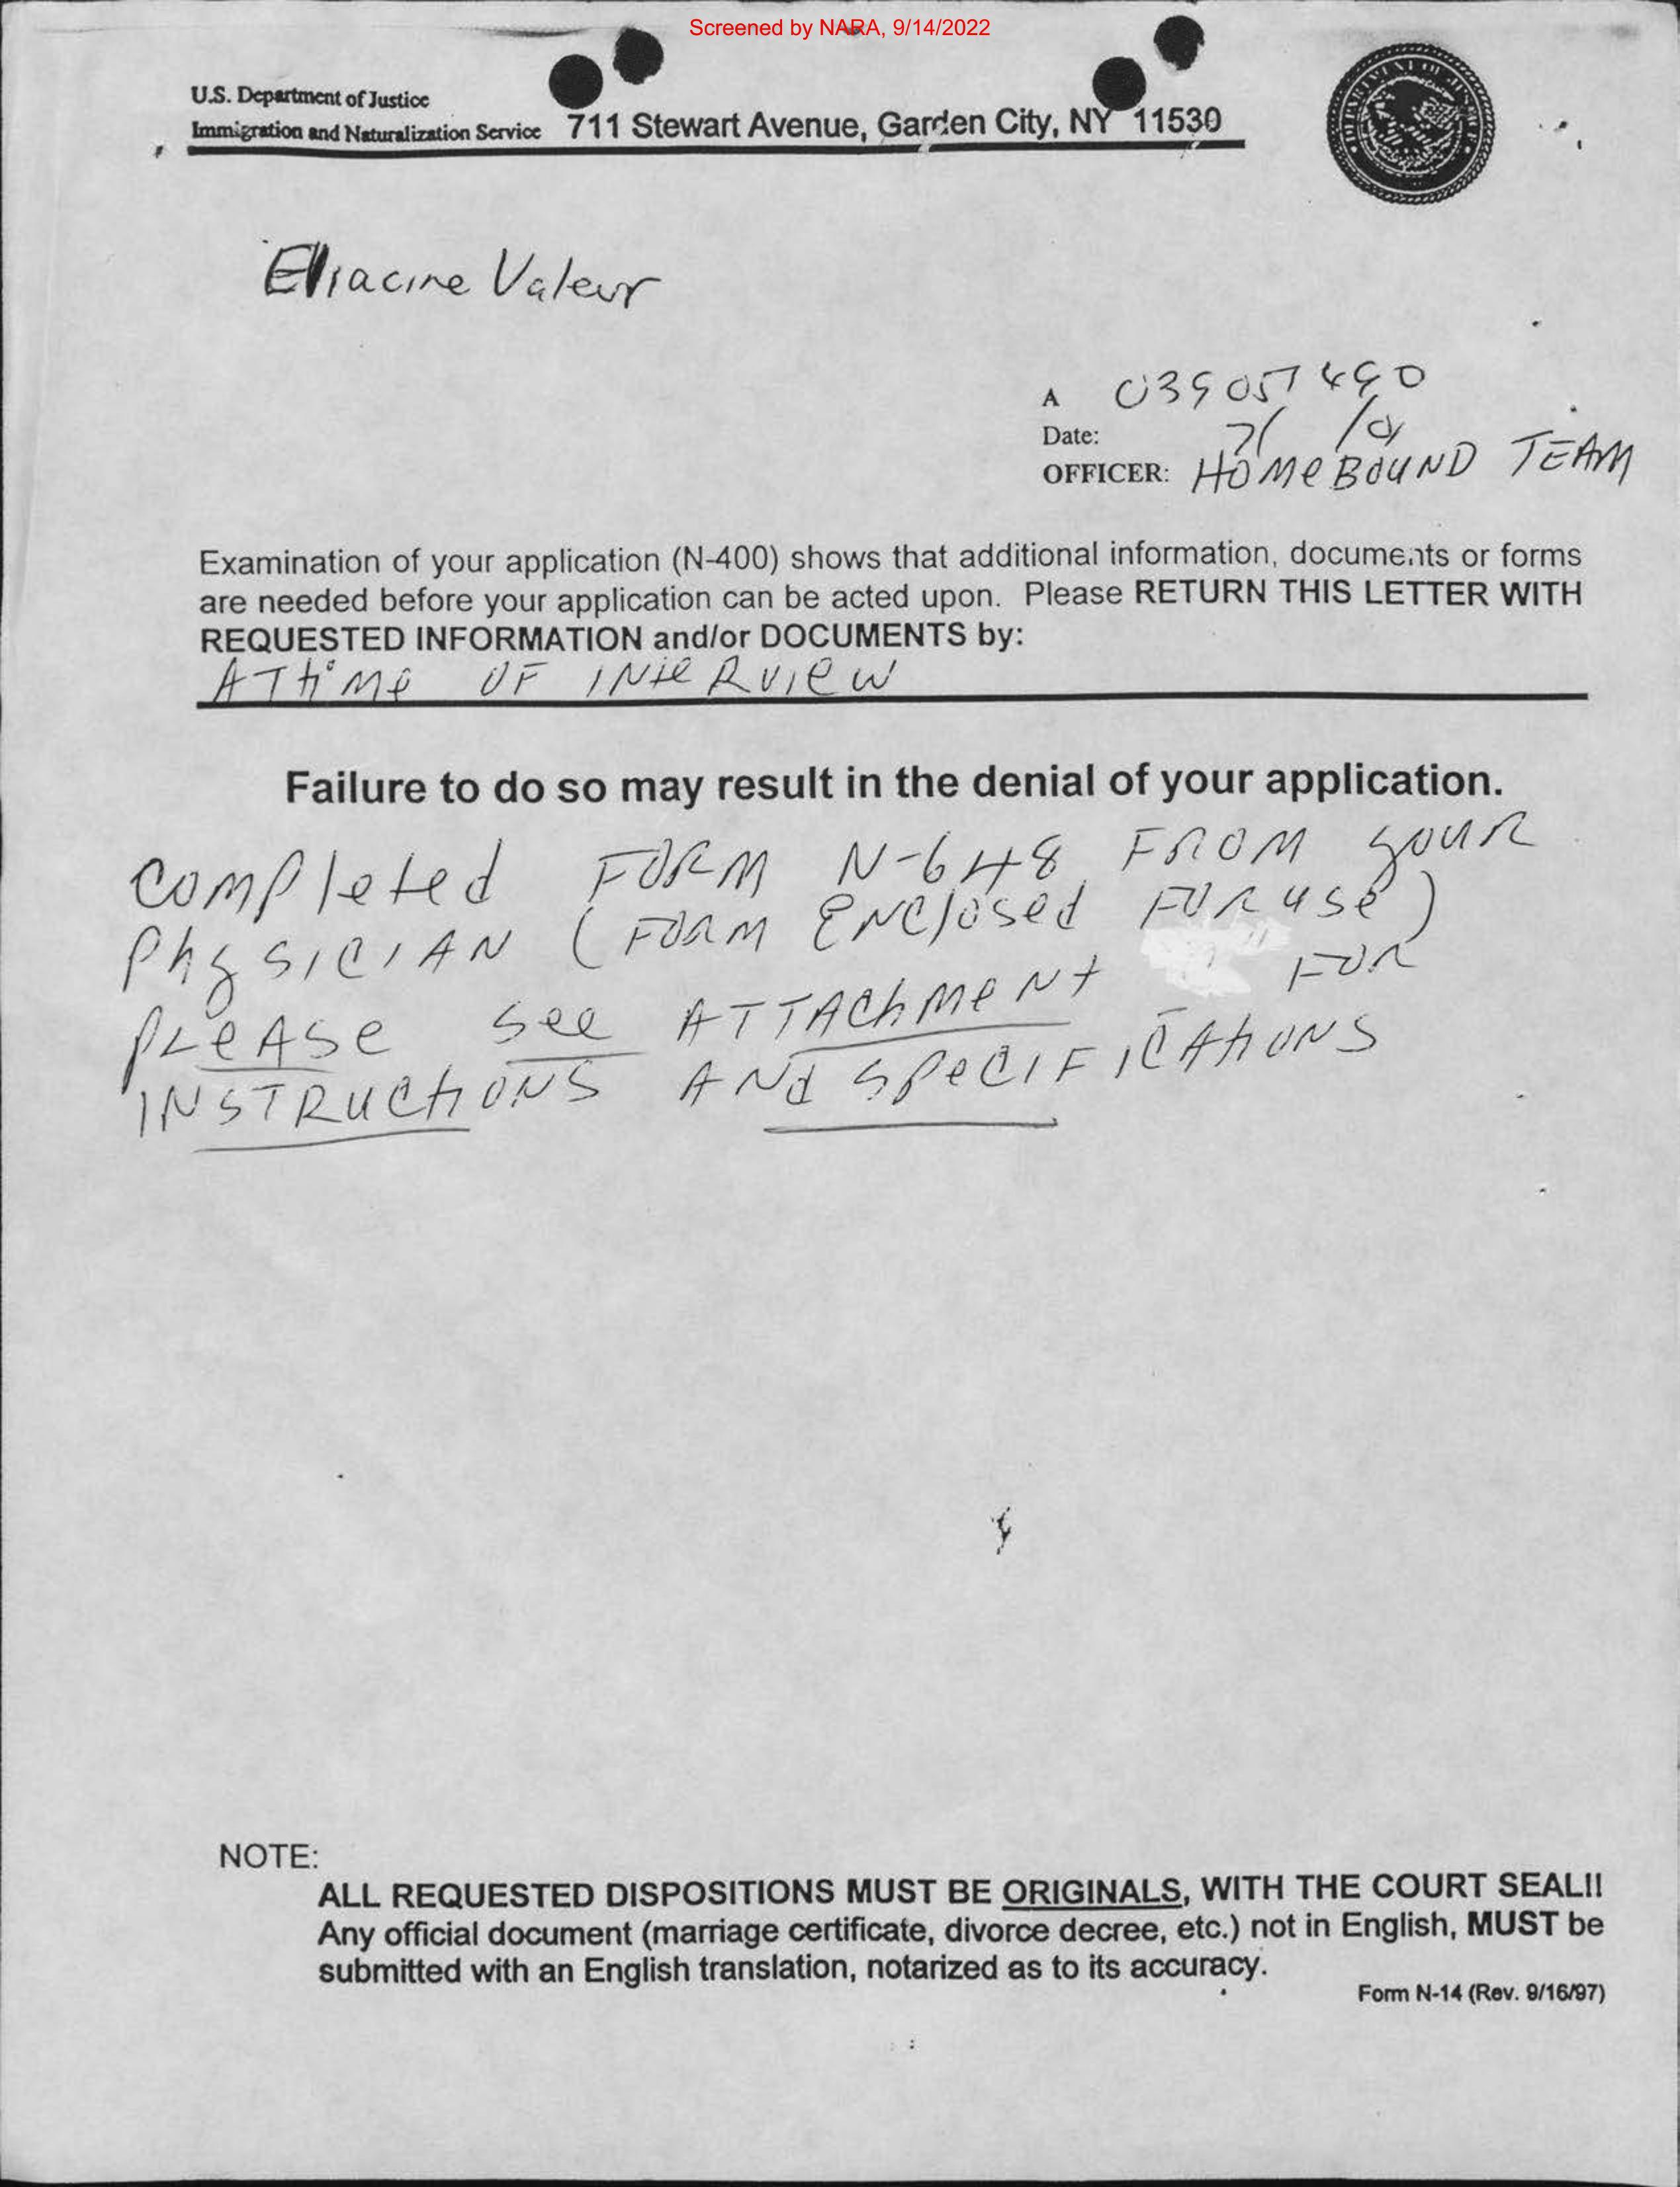 Screened by NARA, 9/14/2022
U.S. Department of Justice
Immigration and Naturalization Service 711 Stewart Avenue, Garden City, NY 11530
Eliacine Valeur
A 039057490
Date:
OFFICER: HOMEBOUND TEAM
Examination of your application (N-400) shows that additional information, documents or forms
are needed before your application can be acted upon. Please RETURN THIS LETTER WITH
REQUESTED INFORMATION and/or DOCUMENTS by:
AT time OF INteRvieW
Failure to do so may result in the denial of your application.
completed FORM N-648 FROM your
PhysiCIAN (FORM ENClosed FOR use)
PLeASe See ATTAChMeNt FOR
INSTRUCtiONS ANd SPeCIFICAtiONS
NOTE:
ALL REQUESTED DISPOSITIONS MUST BE ORIGINALS, WITH THE COURT SEAL!!
Any official document (marriage certificate, divorce decree, etc.) not in English, MUST be
submitted with an English translation, notarized as to its accuracy.
Form N-14 (Rev. 9/16/97)